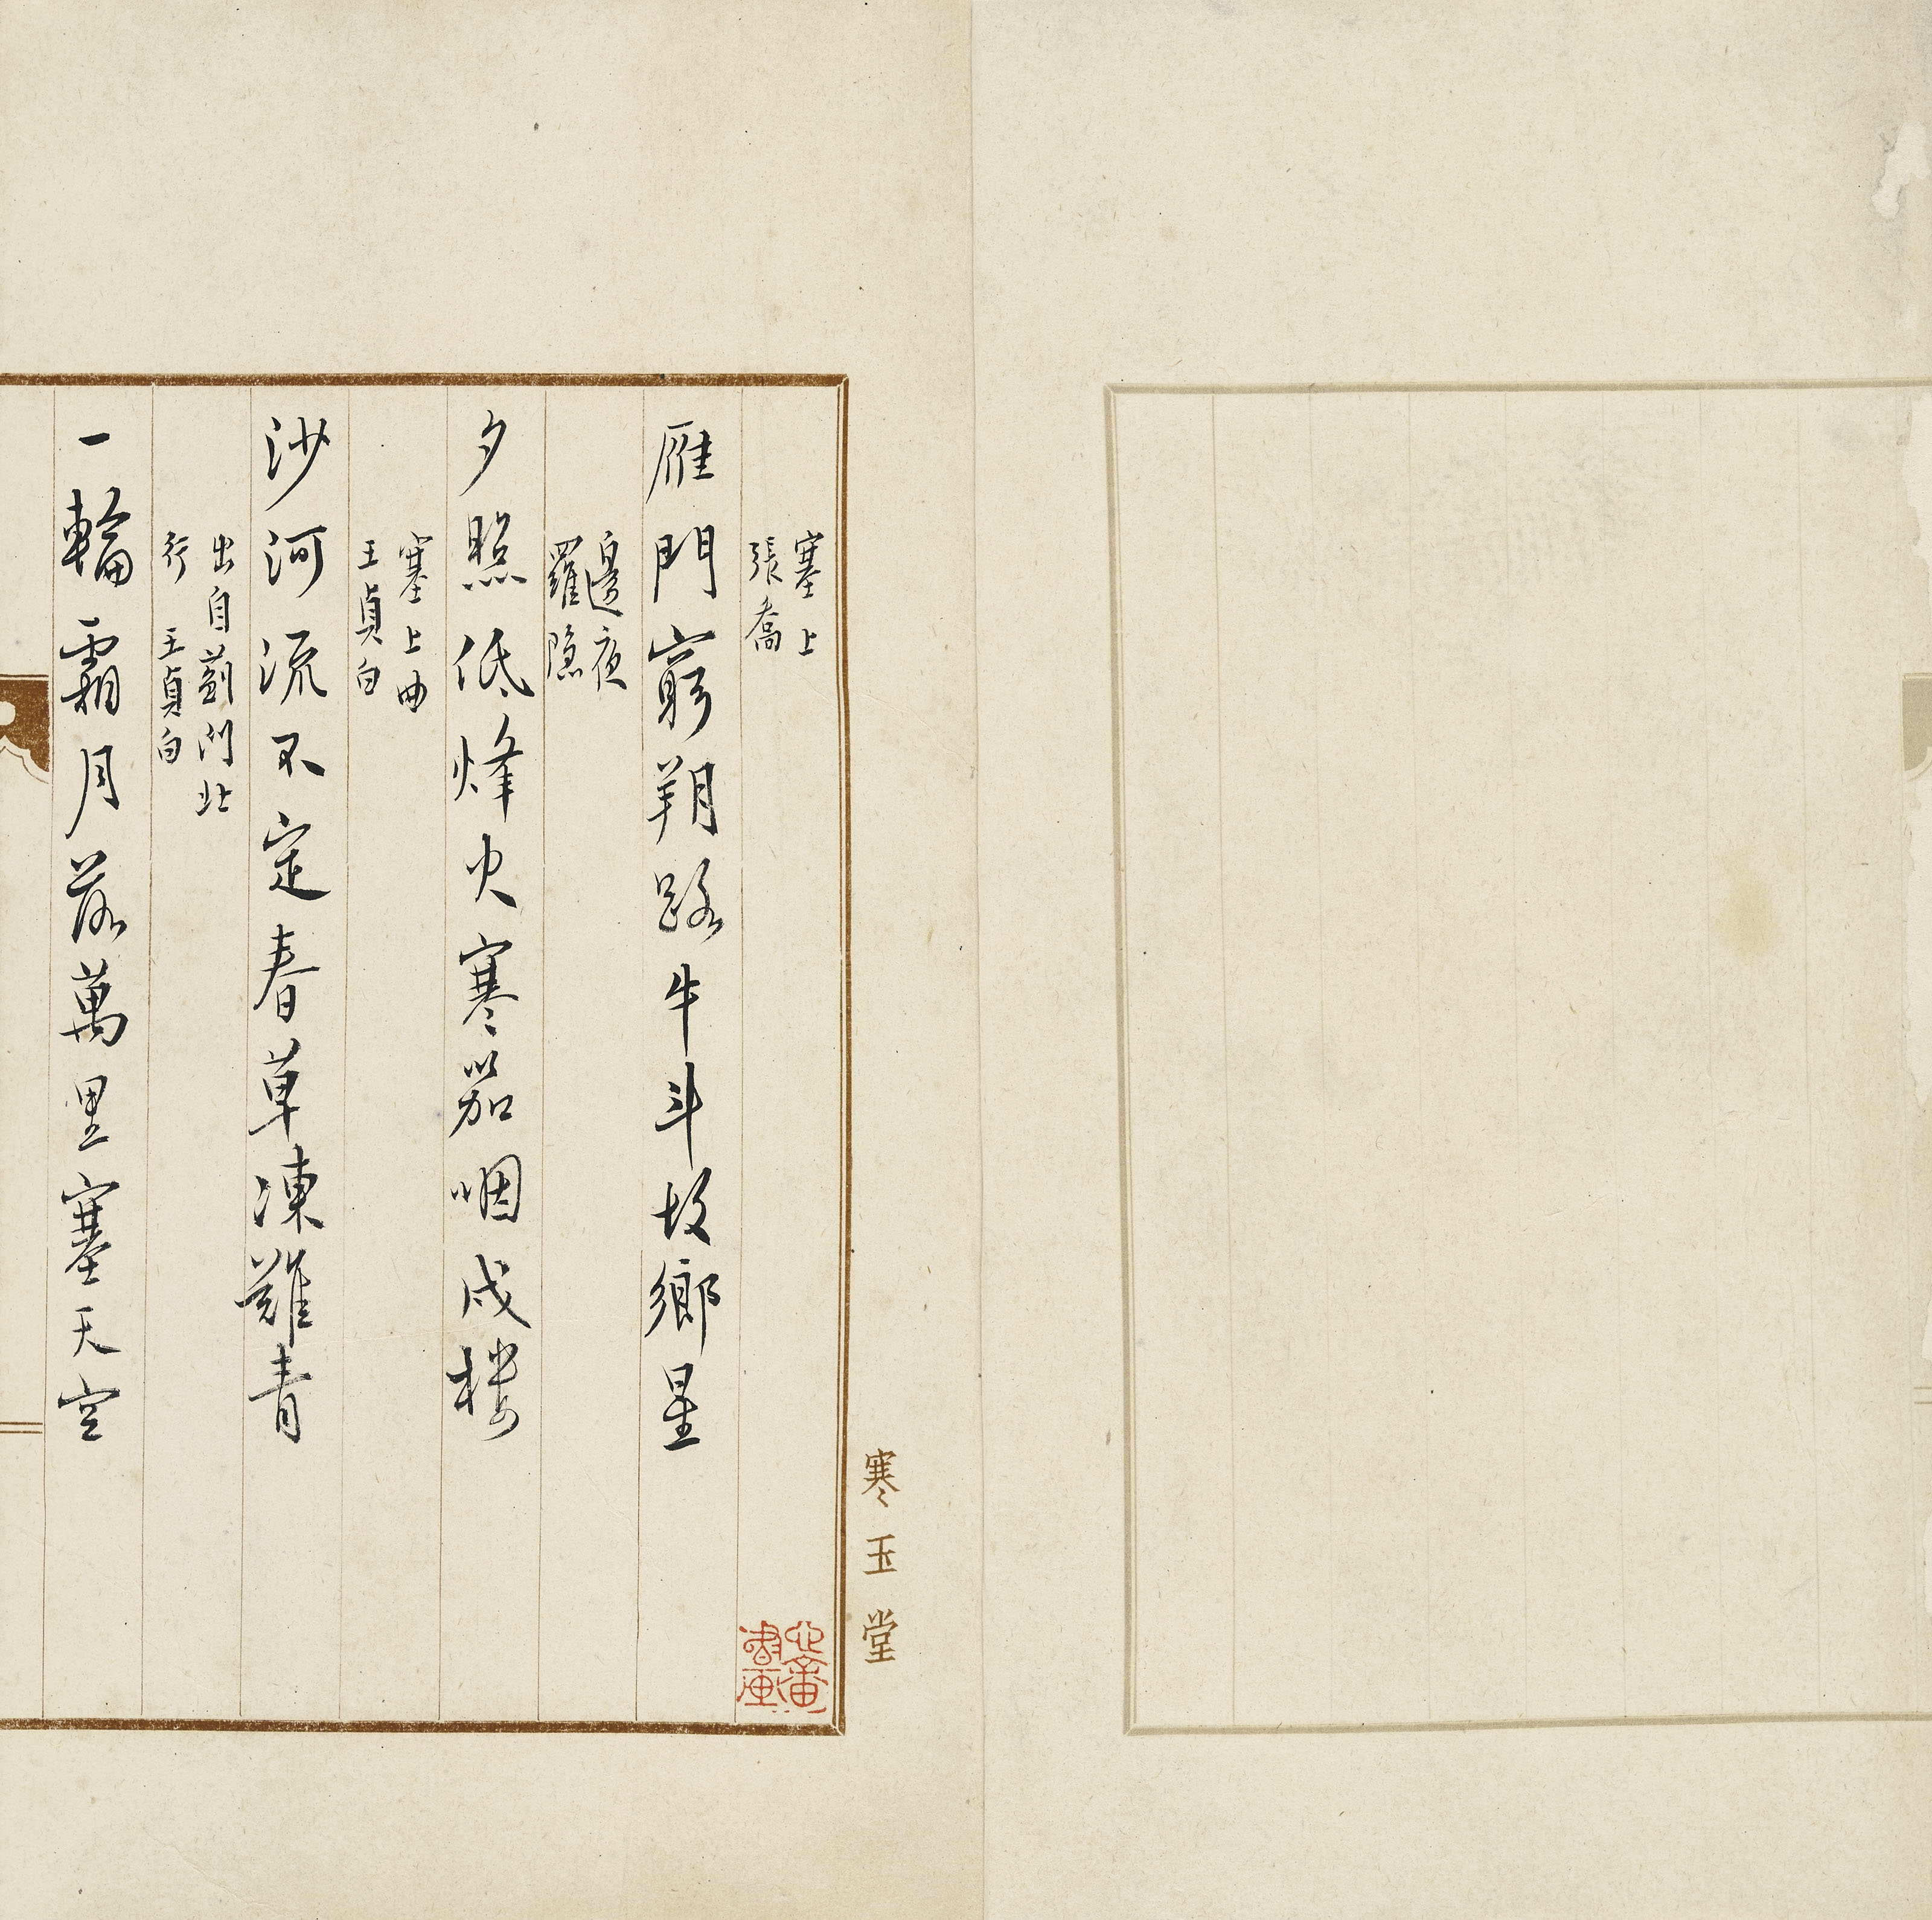 寒玉堂
塞上
張喬
雁門窮朔路牛斗故鄉星
邊夜
羅隱
夕照低烽火寒笳咽戍樓
塞上曲
王貞白
沙河流不定春草凍難青
出自薊門北
行 王貞白
一輪霜月落萬里塞天空
心畬書畫